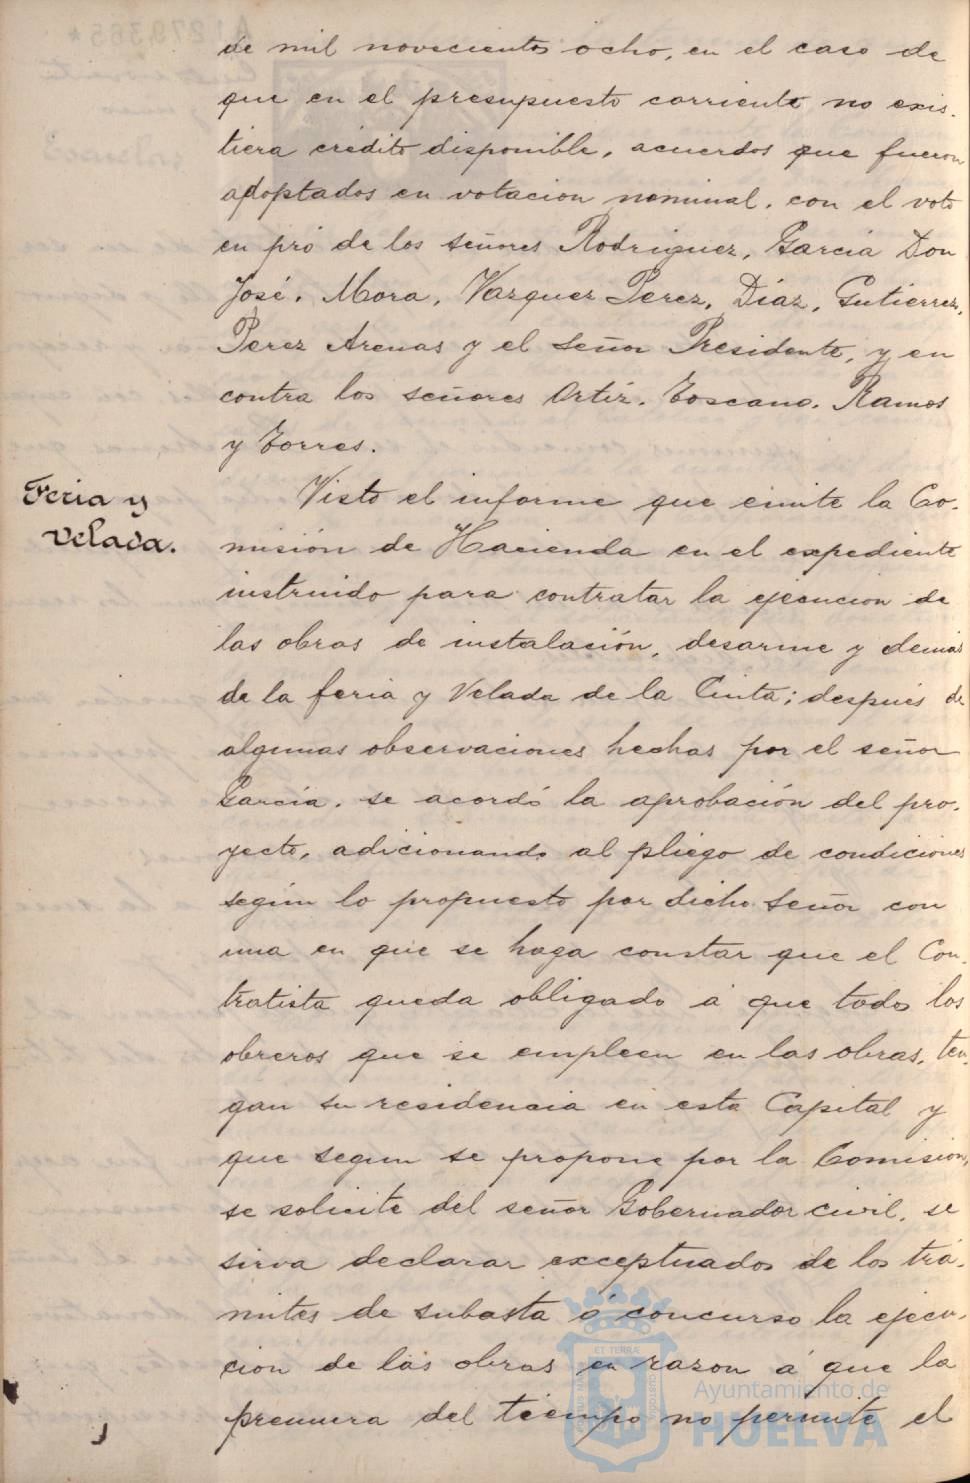 de mil novecientos ocho, en el caso de
que en el presupuesto corriente no exis-
tiera crédito disponible, acuerdos que fueron
adoptados en votacion nominal, con el voto
en pró de los señores Rodriguez, García Don
José, Mora, Vazquez Perez, Díaz, Gutierrez,
Perez Arenas y el señor Presidente, y en
contra los señores Ortíz, Toscano, Ramos
y Torres.
Feria y
Velada.
Visto el informe que emite la Co-
misión de Hacienda en el expediente
instruido para contratar la ejecucion de
las obras de instalación, desarme y demás
de la feria y Velada de la Cinta; después de
algunas observaciones hechas por el señor
García, se acordó la aprobación del pro-
yecto, adicionando al pliego de condiciones
según lo propuesto por dicho Señor con
una en que se haga constar que el Con-
tratista queda obligado á que todos los
obreros que se empleen en las obras, ten-
gan su residencia en esta Capital y
que segun se propone por la Comision,
se solicite del señor Gobernador civil, se
sirva declarar exceptuados de los trá-
mites de subasta ó concurso la ejecu-
cion de las obras en razon á que la
premura del tiempo no permite el
Ayuntamiento de
HUELVA